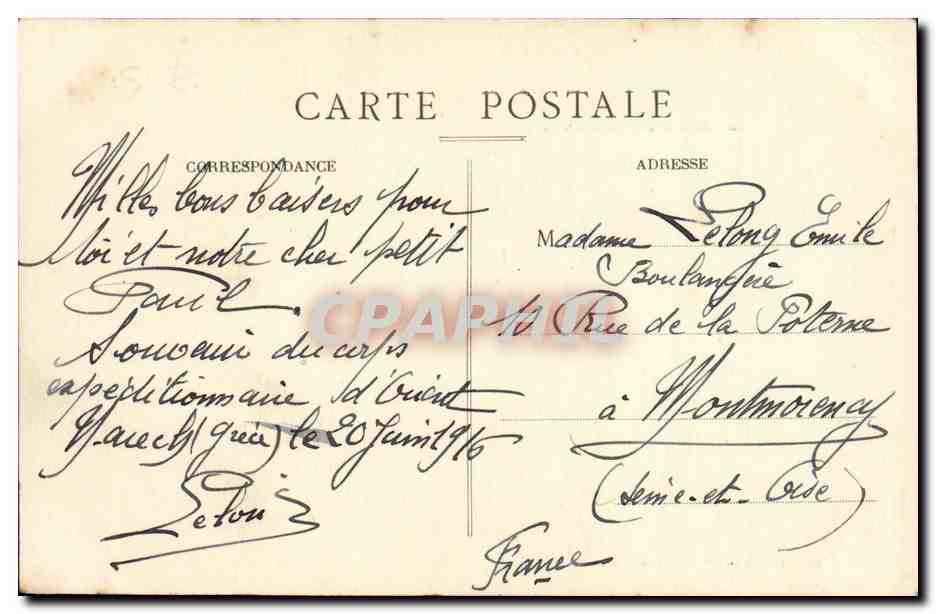 CARTE POSTALE
CORRESPONDANCE
Milles bons baisers pour
toi et notre cher petit
Paul.
Souvenir du corps
expéditionnaire d'Orient
(Grèce) le 20 Juin 1916
Lelong
ADRESSE
Madame Lelong Emile
Boulangère
10 Rue de la Poterne
à Montmorency
(Seine-et-Oise)
France
CPAPHIL